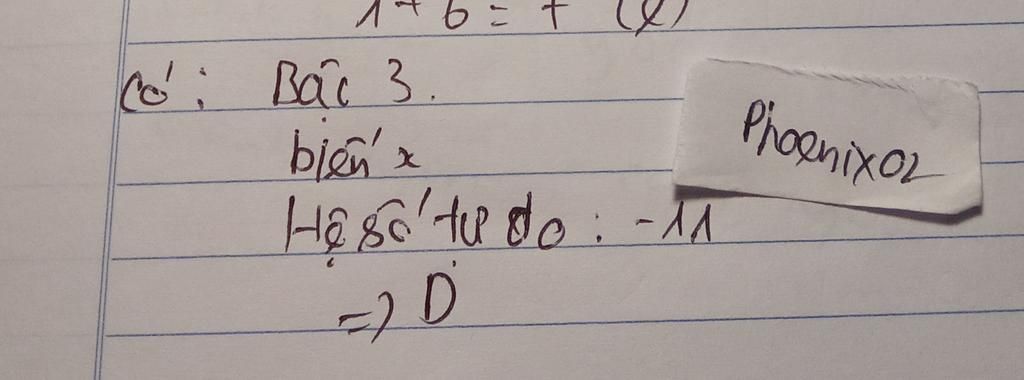 1 + 6 = 7 (l)
Có: Bậc 3.
biến x
Hệ số tự do : -11
=) D
Phoenix02